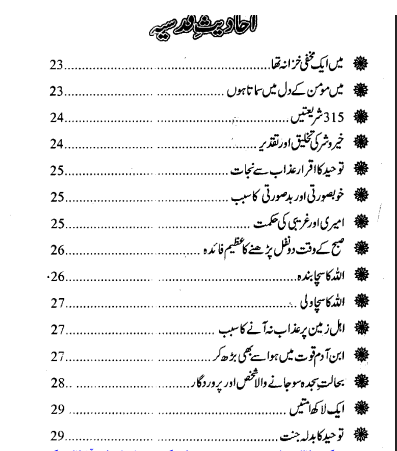 احادیثِ قدسیہ
میں ایک مخفی خزانہ تھا 23
میں مؤمن کے دل میں سماتا ہوں 23
315 شریعتیں 24
خیر و شر کی تخلیق اور تقدیر 24
توحید کا اقرار عذاب سے نجات 25
خوبصورتی اور بدصورتی کا سبب 25
امیری اور غریبی کی حکمت 25
صبح کے وقت دو نفل پڑھنے کا عظیم فائدہ 26
اللہ کا سچا بندہ 26
اللہ کا سچا ولی 27
اہل زمین پر عذاب نہ آنے کا سبب 27
ابن آدم قوت میں ہوا سے بھی بڑھ کر 27
بحالت سجدہ سو جانے والا شخص اور پروردگار 28
ایک لاکھ امتیں 29
توحید کا بدلہ جنت 29